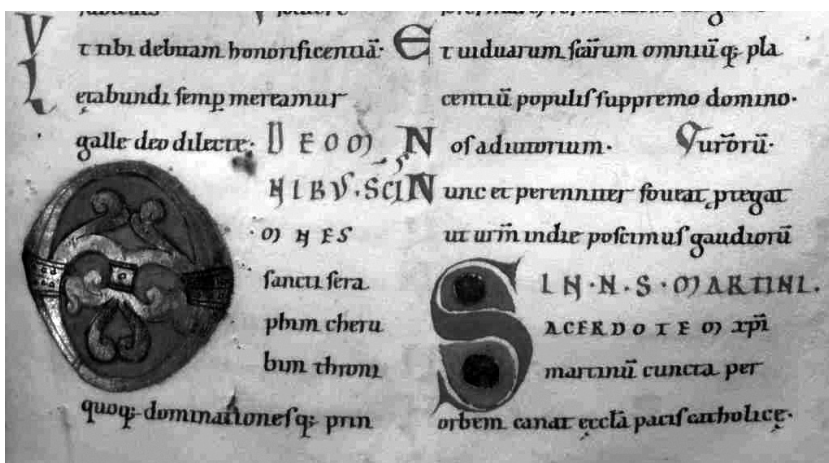 T tibi debitam honorificentiā·
Letabundi semp mereamur
galle deo dilecte· DE OM
NIBVS·SCI
OMNES
sancti sera
phim cheru
bim throni
quoq;·dominationesq; prin
Et uiduarum scārum omniū q; pla
centiū populis suppremo domino·
Nos adiutorium· Auroꝝ·
Nunc et perenniter foueat ꝓtegat
ut urm̄ in die poscimus gaudioꝝ
IN·N·S·MARTINI.
SACERDOTEM xp̄i
martinū cuncta per
orbem canat eccl̄a pacis catholicę·